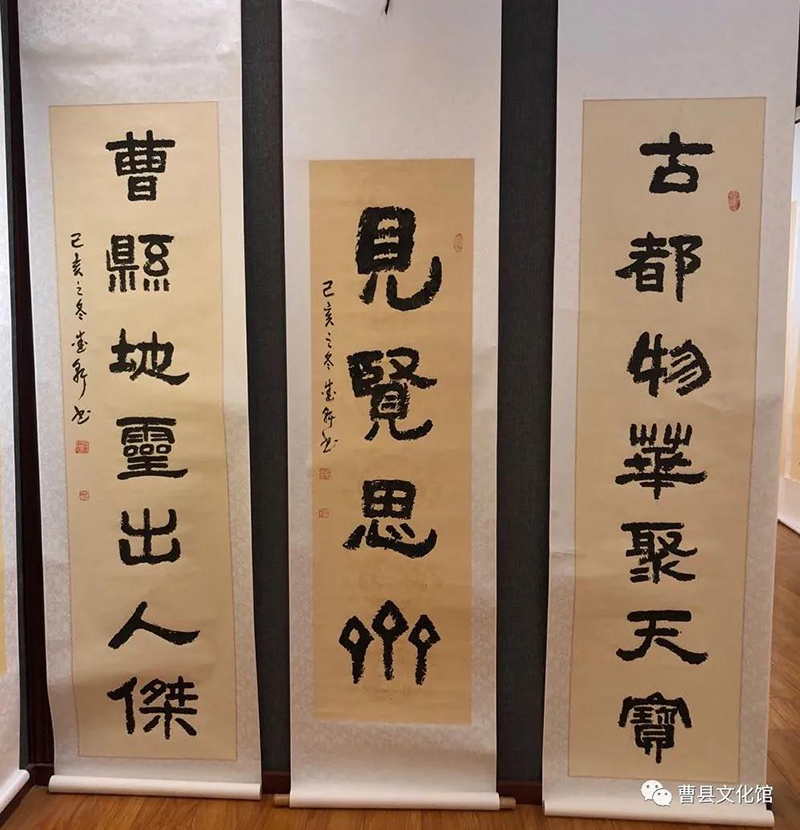 古都物華聚天寶
見賢思齊
己亥之冬
曹縣地靈出人傑
己亥之冬
曹县文化馆